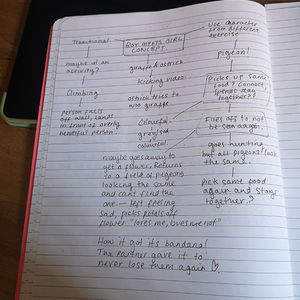 Traditional
BOY MEETS GIRL
CONCEPT
Use character
from different
exercise
maybe at an
activity?
giraffe & ostrich
Pigeon!
Kicking video
Climbing
Picks up same
food? Connect,
spends day
together?
ostrich tries to
woo giraffe
person falls
off wall, lands
in front of overly
beautiful person.
Colourful
greyised
colourful
Flies off to not
be seen again
goes hunting
but all pigeons look
the same.
maybe goes away to
get a flower, returns
to a field of pigeons
looking the same
and cant find the
one — left feeling
sad, picks petals off
flower "loves me, loves me not"
pick same food
again and stays
together?
How it got its bandana!
The partner gave it to
never lose them again